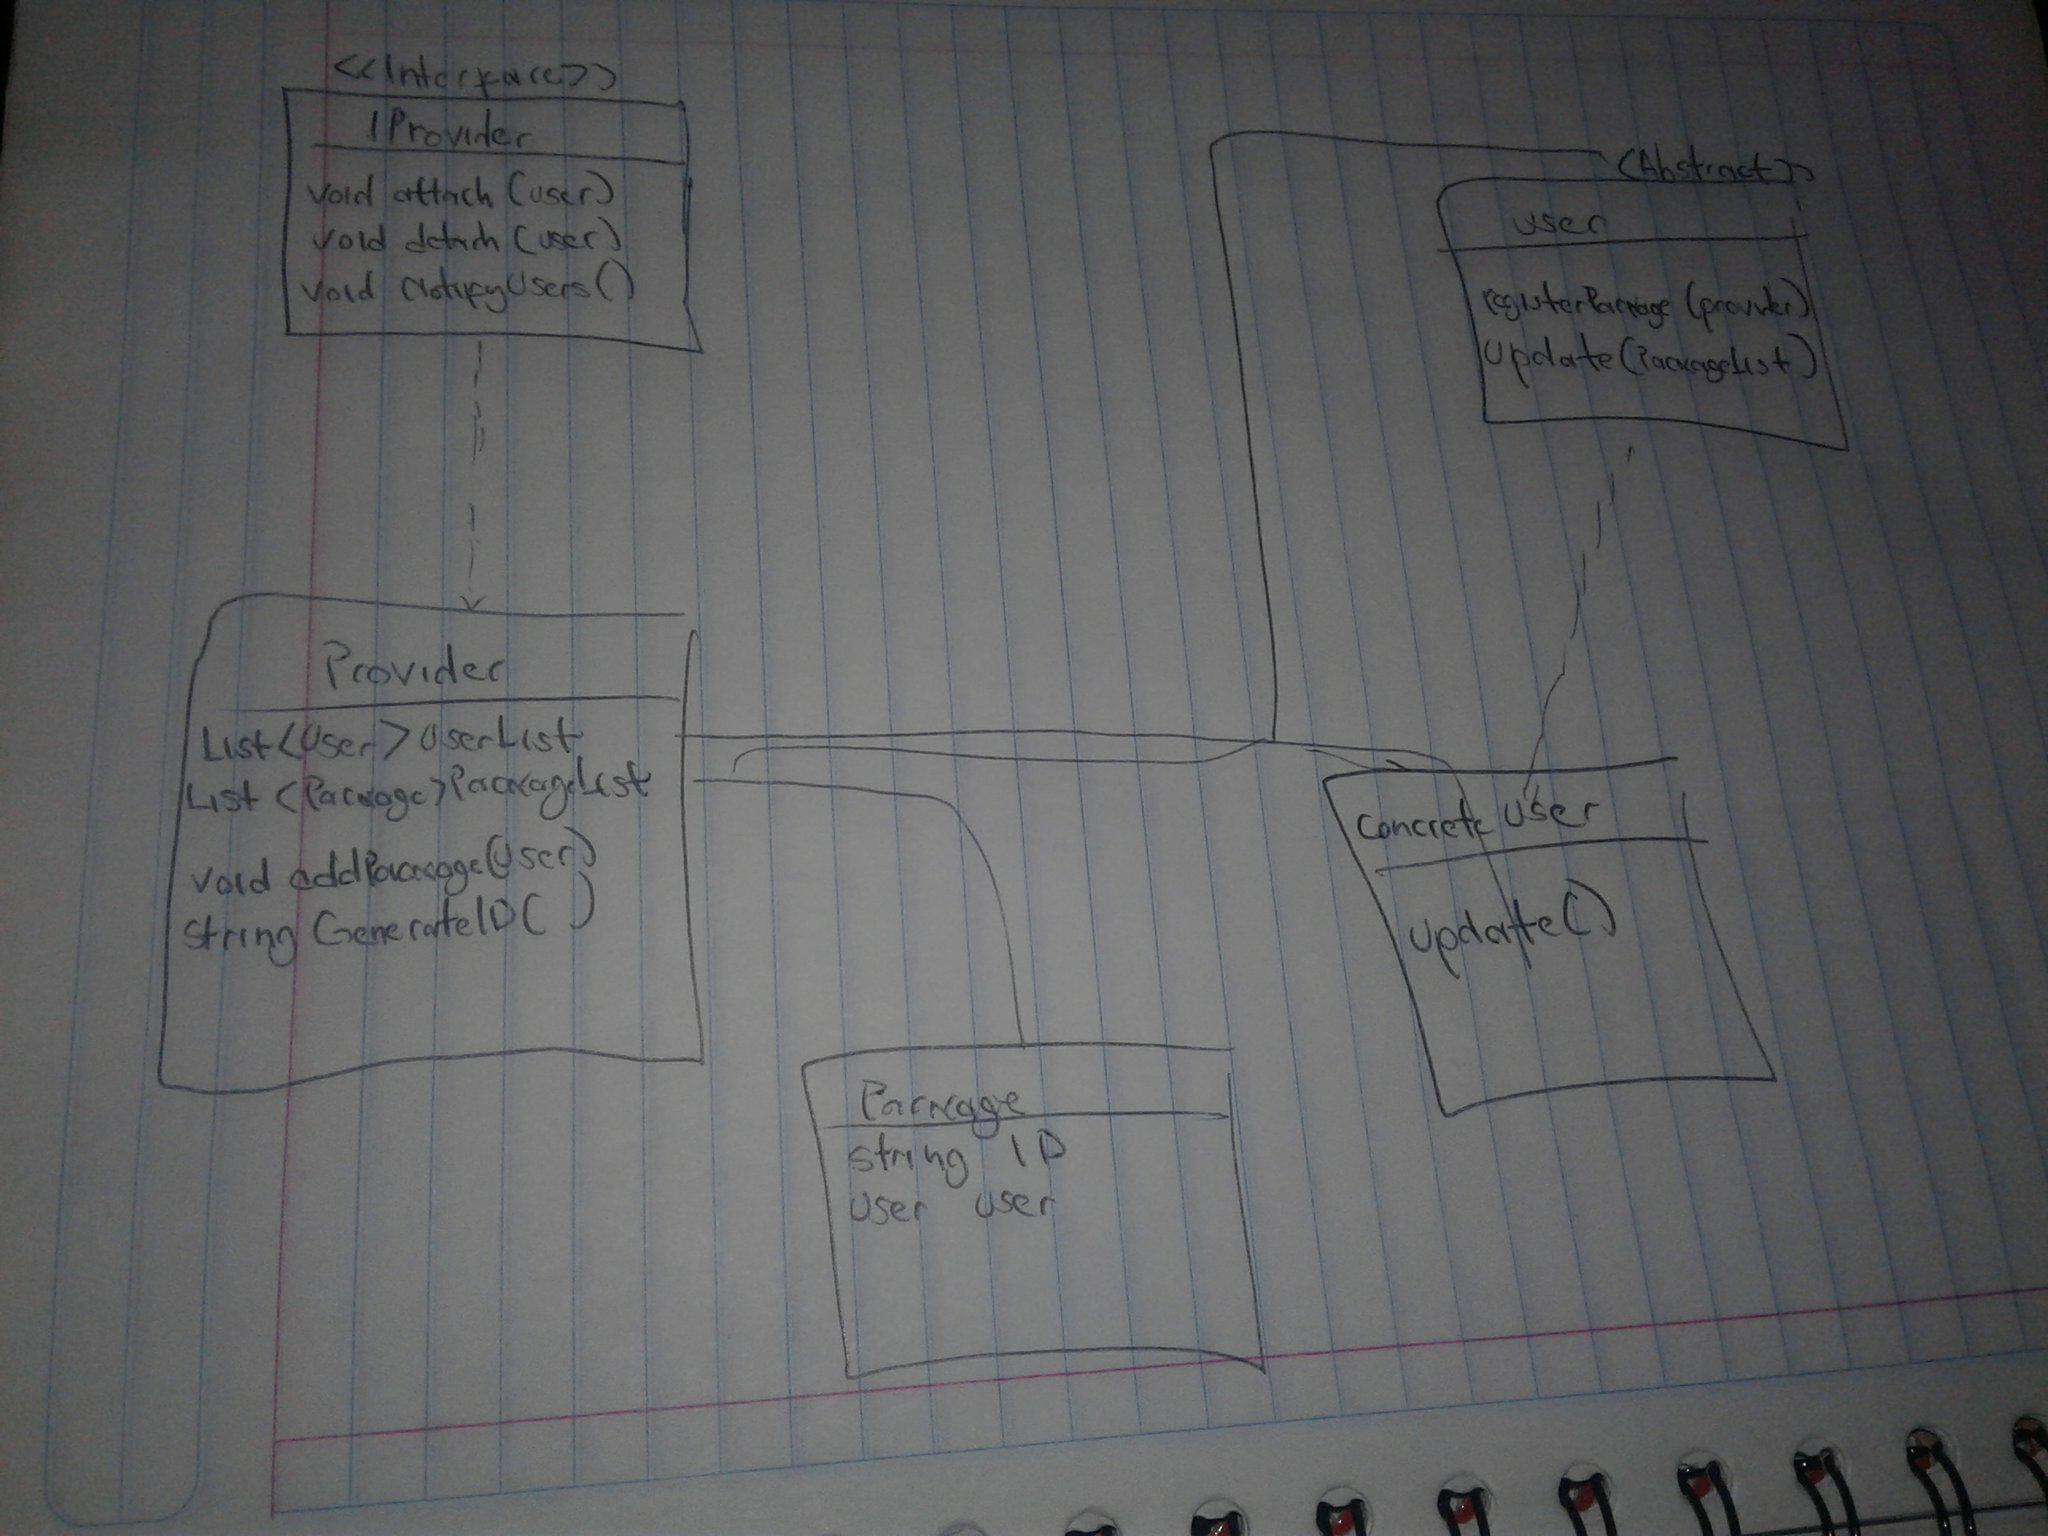 <<Interface>>
IProvider
void attach (user)
void detach (user)
void NotifyUsers()
<Abstract>>
user
registerPackage (provider)
update(PackageList)
Provider
List<User> UserList
List <Package> PackageList
void addPackage(User)
string GenerateID( )
concrete user
update()
Package
string ID
user user